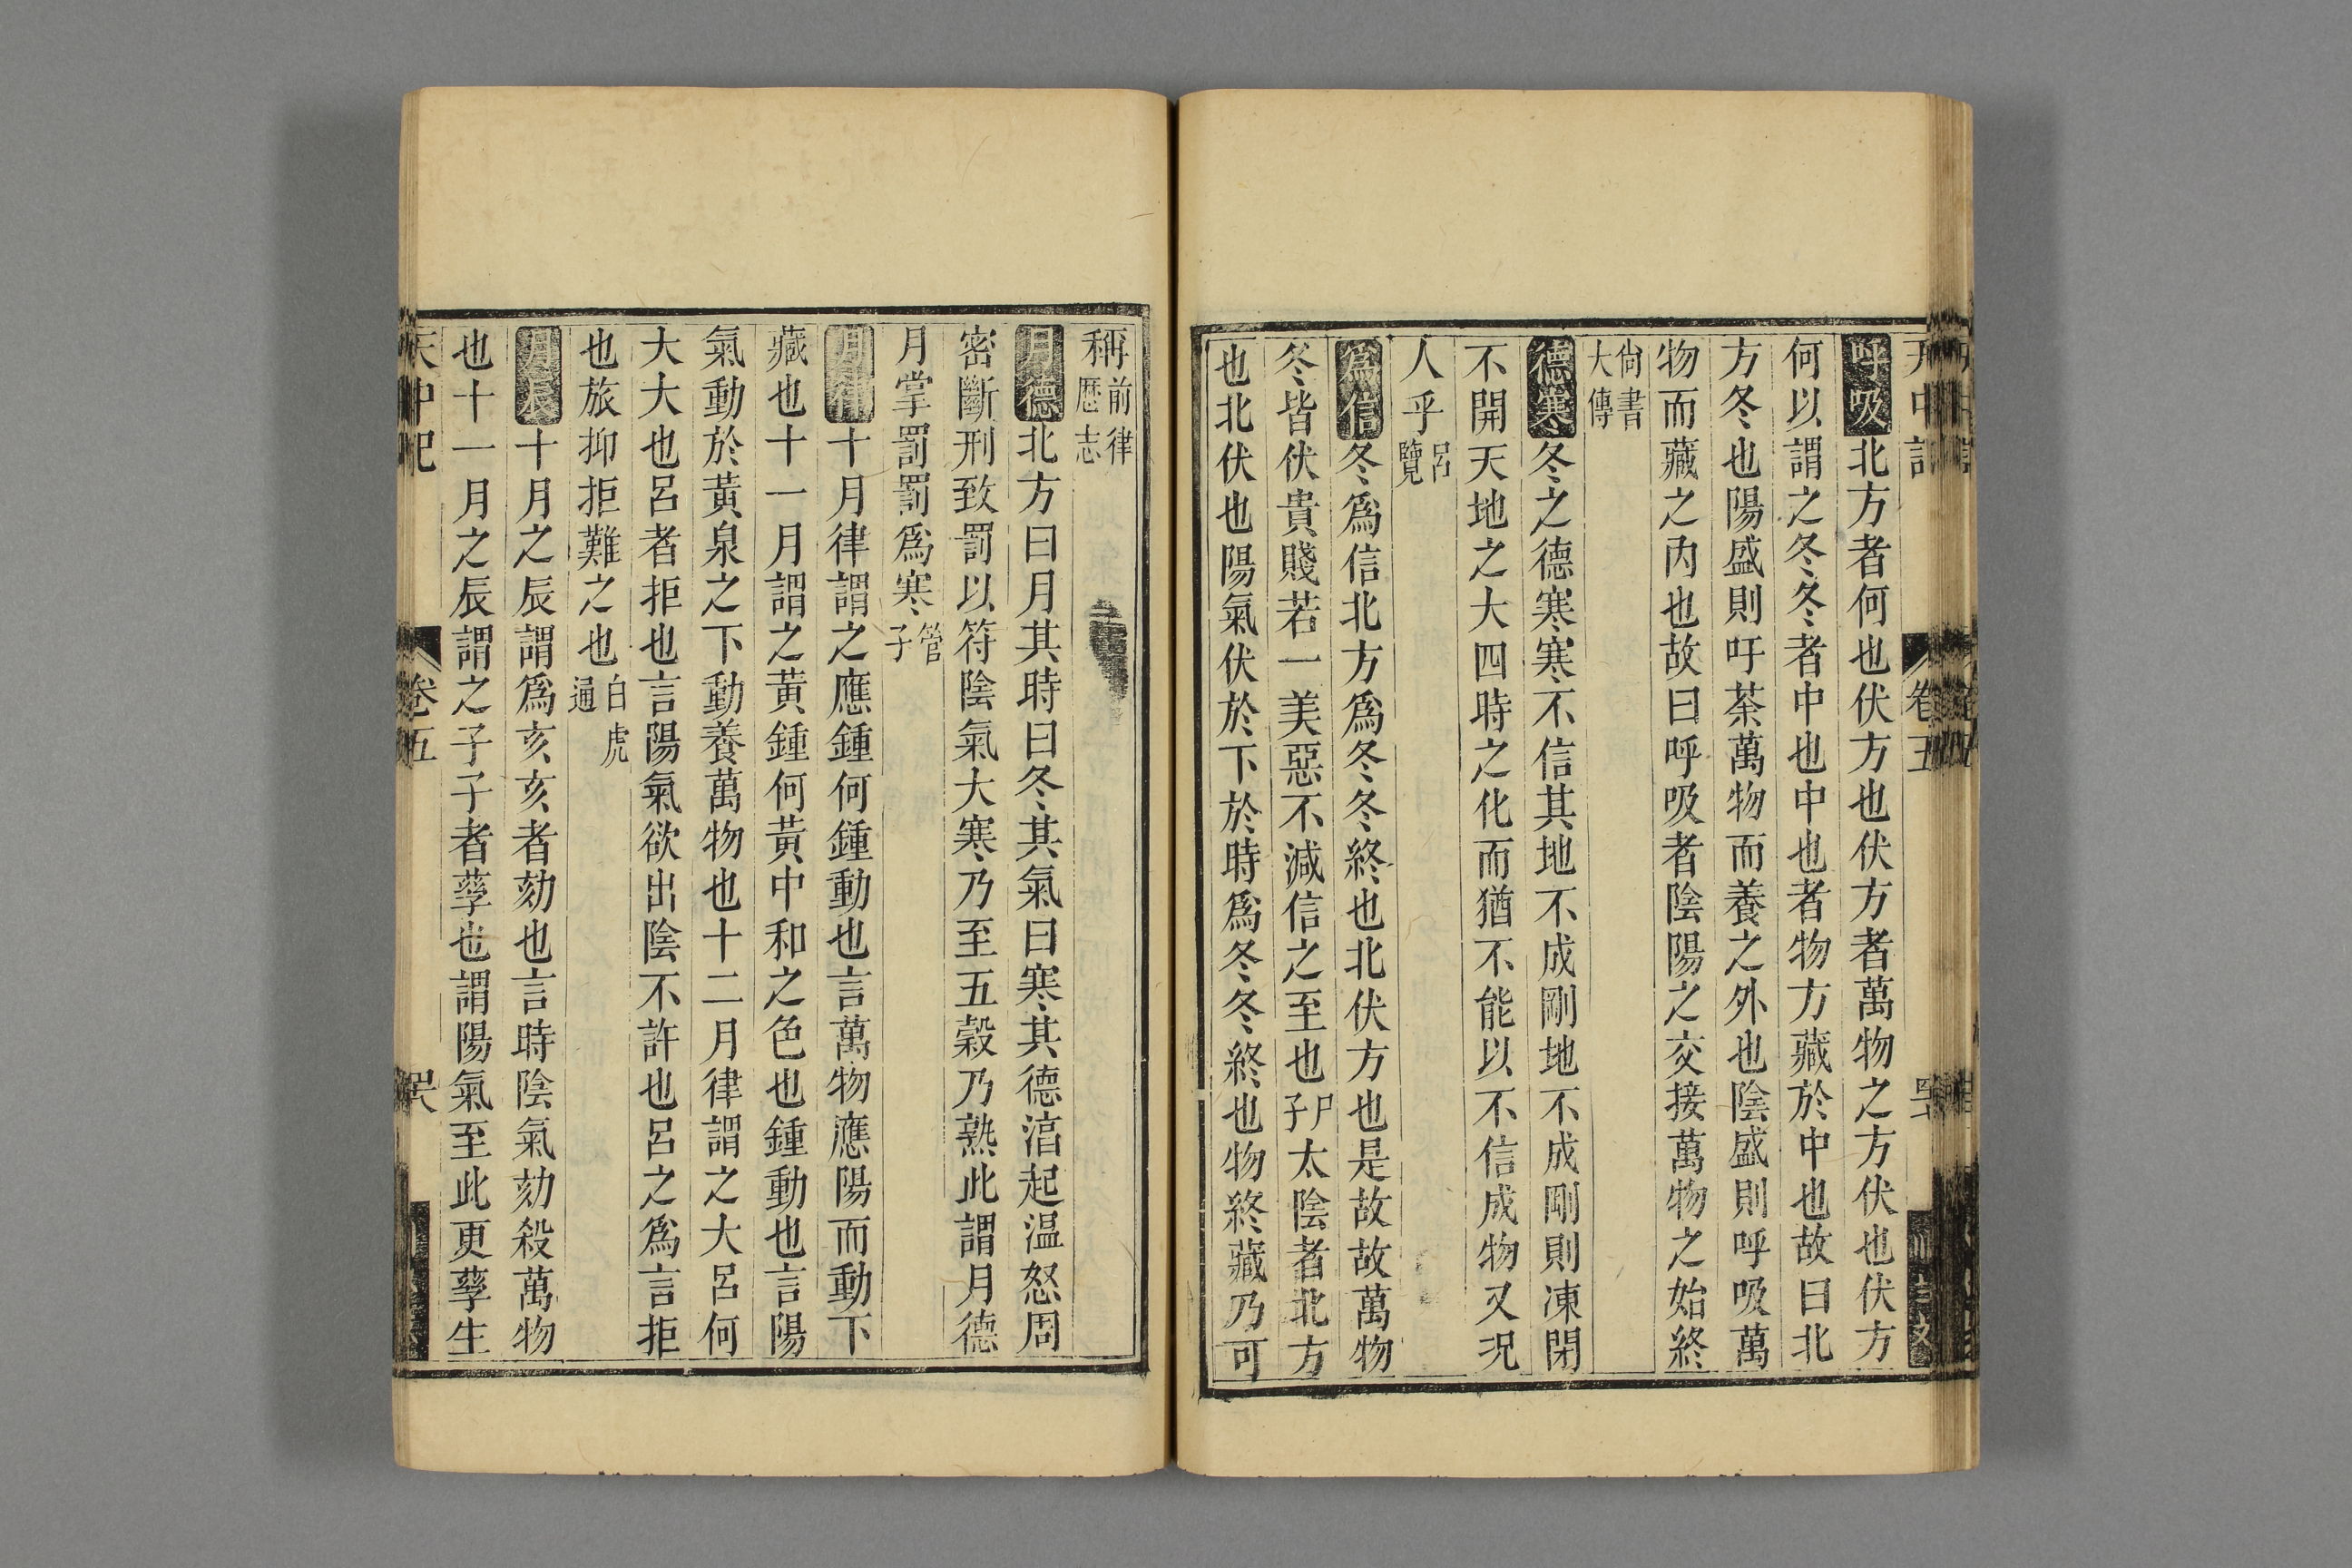 呼吸北方者何也伏方也伏方者萬物之方伏也伏方
何以謂之冬冬者中也中也者物方藏於中也故曰北
方冬也陽盛則吁荼萬物而養之外也陰盛則呼吸萬
物而藏之內也故曰呼吸者陰陽之交接萬物之始終
尙書
大傳
德寒冬之德寒寒不信其地不成剛地不成剛則凍閉
不開天地之大四時之化而猶不能以不信成物又况
人乎呂覽
爲信冬爲信北方爲冬冬終也北伏方也是故故萬物
冬皆伏貴賤若一美惡不減信之至也尸子太陰者北方
也北伏也陽氣伏於下於時爲冬冬終也物終藏乃可
稱前律歷志
月德北方曰月其時曰冬其氣曰寒其德湻起温怒周
密斷刑致罰以符陰氣大寒乃至五穀乃熟此謂月德
月掌罰罰爲寒管子
月律十月律謂之應鍾何鍾動也言萬物應陽而動下
藏也十一月謂之黃鍾何黃中和之色也鍾動也言陽
氣動於黃泉之下動養萬物也十二月律謂之大呂何
大大也呂者拒也言陽氣欲出陰不許也呂之爲言拒
也旅抑拒難之也白虎通
月辰十月之辰謂爲亥亥者劾也言時陰氣劾殺萬物
也十一月之辰謂之子子者孳也謂陽氣至此更孳生
天中記
卷五